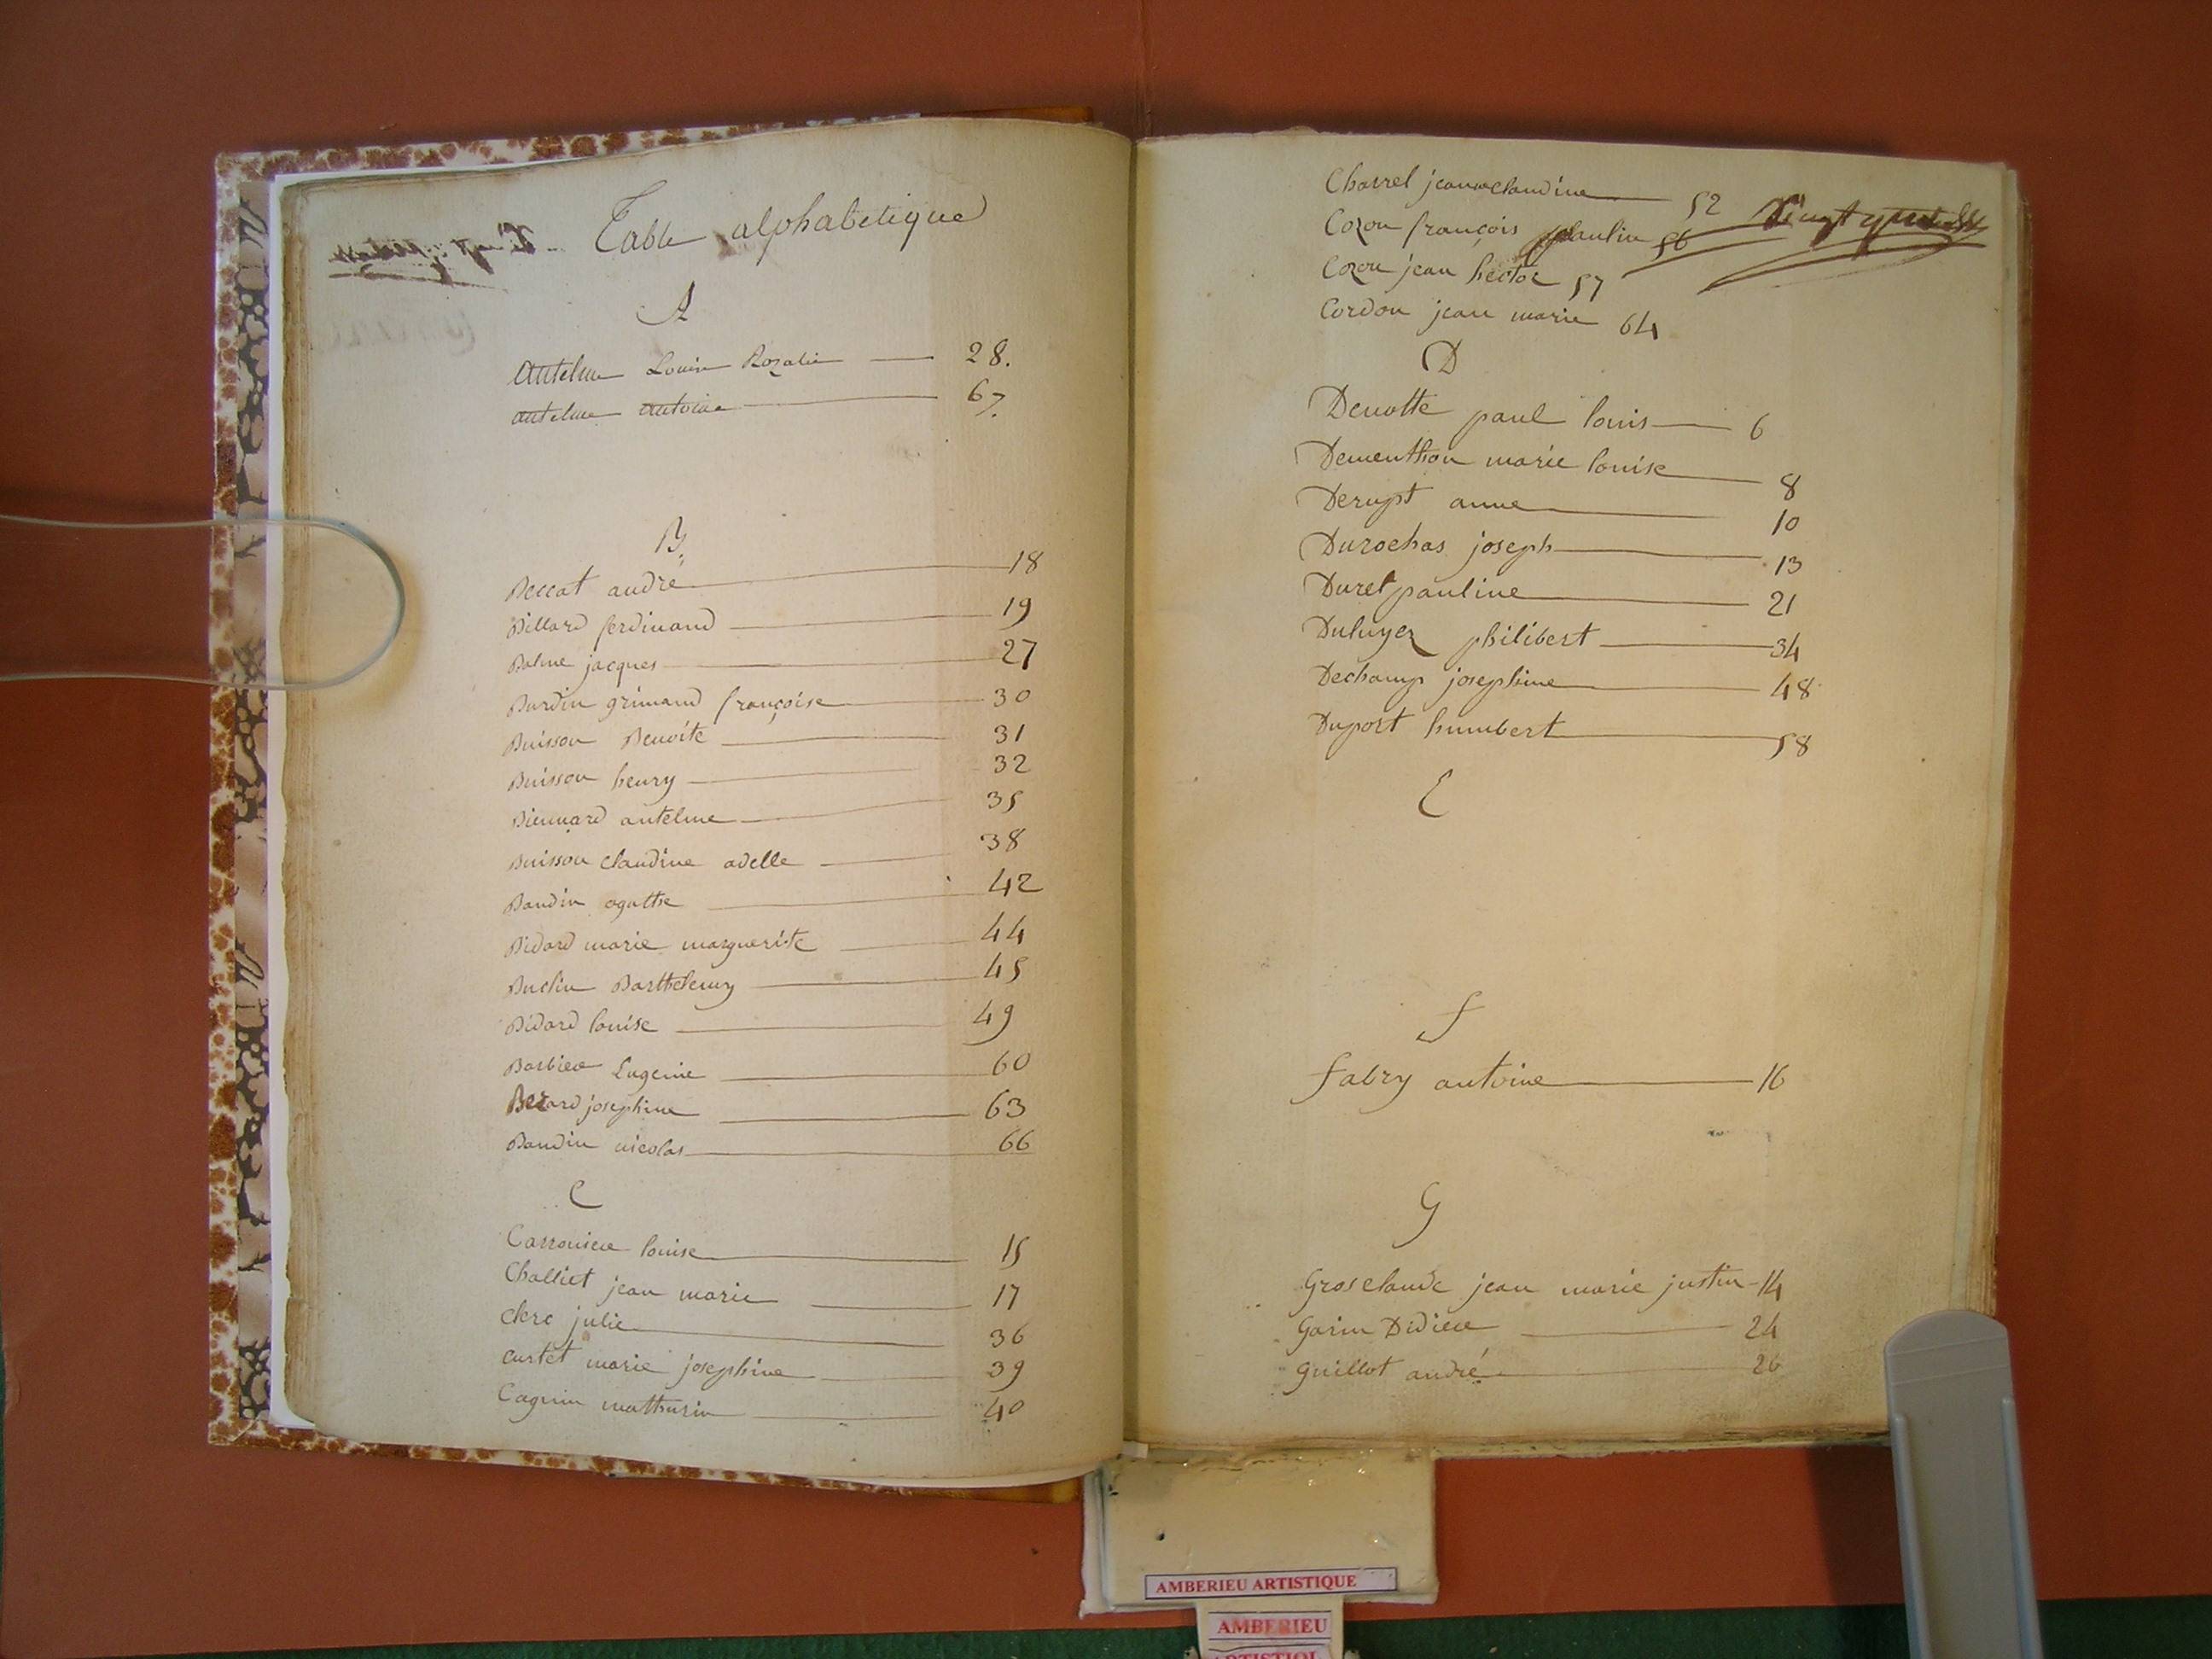 Table alphabetique
A
Antelme Louise Rozalie 28.
antelme antoine 67.
B.
Beccat andré 18
Billard ferdinand 19
Balme jacques 27
Burdin grimand françoise 30
Buisson Benoite 31
Buisson henry 32
Biennard antelme 35
Buisson Claudine adelle 38
Baudin agathe 42
Bidard marie marguerite 44
Buclin Barthelemy 45
Bidard louise 49
Barbier Eugenie 60
Berard josephine 63
Baudin nicolas 66
C
Carroniere louise 15
Challiet jean marie 17
Clerc julie 36
Curtet marie josephine 39
Cagnin mathurin 40
Charrel jeanne Claudine 52
Cozon françois paulin 56
Cozon jean hector 57
Cordon jean marie 64
D
Denotte paul louis 6
Dementhon marie louise 8
Derupt anne 10
Durochas joseph 13
Duret pauline 21
Duluyez philibert 34
Dechamp josephine 48
Duport humbert 58
E
f
fabry antoine 16
G
Groselaude jean marie justin 14
Garin Didiere 24
Guillot andré 26
AMBERIEU ARTISTIQUE
AMBERIEU
ARTISTIQU